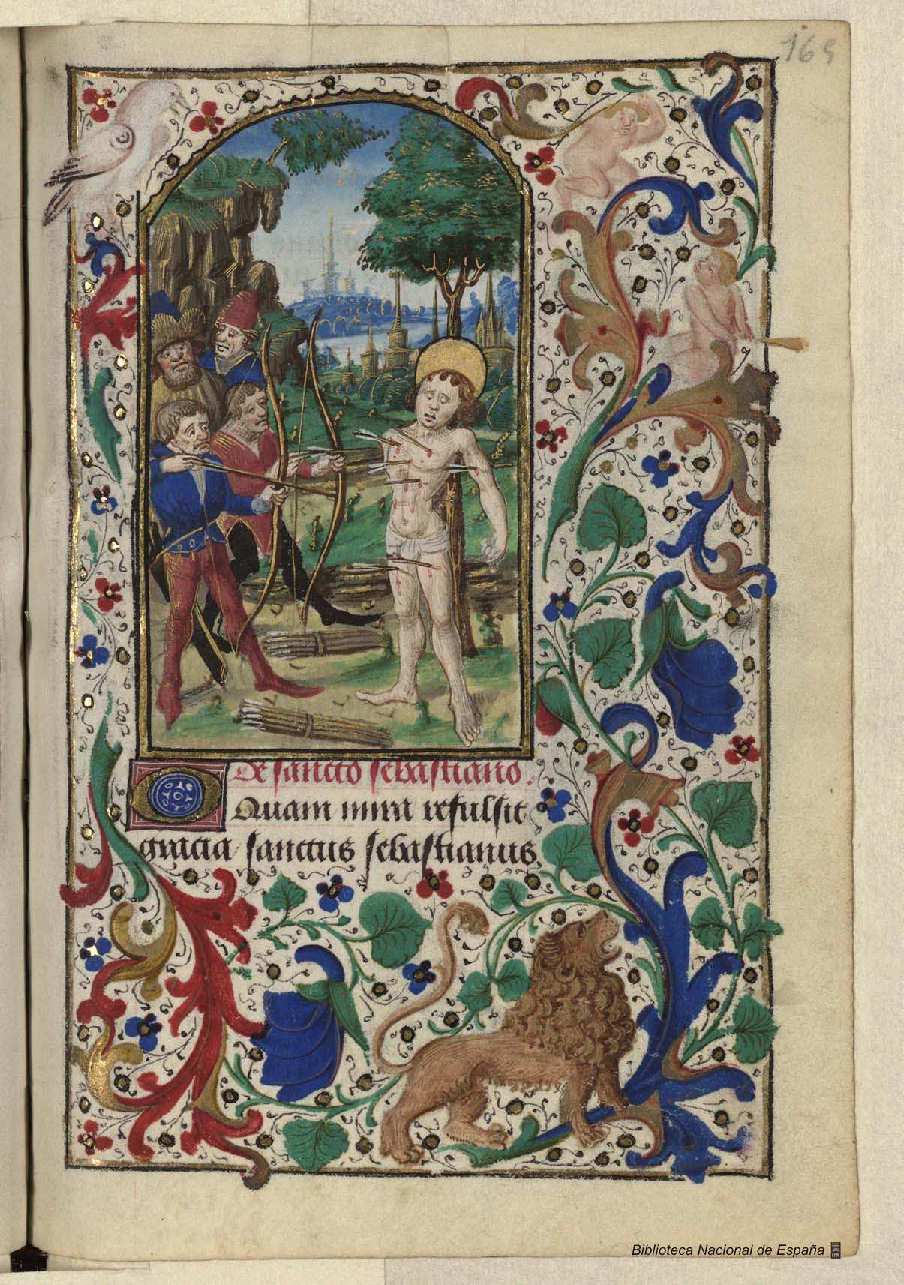 165
De sancto sebastiano.
Quam mira refulsit
gracia sanctus sebastianus
Biblioteca Nacional de España